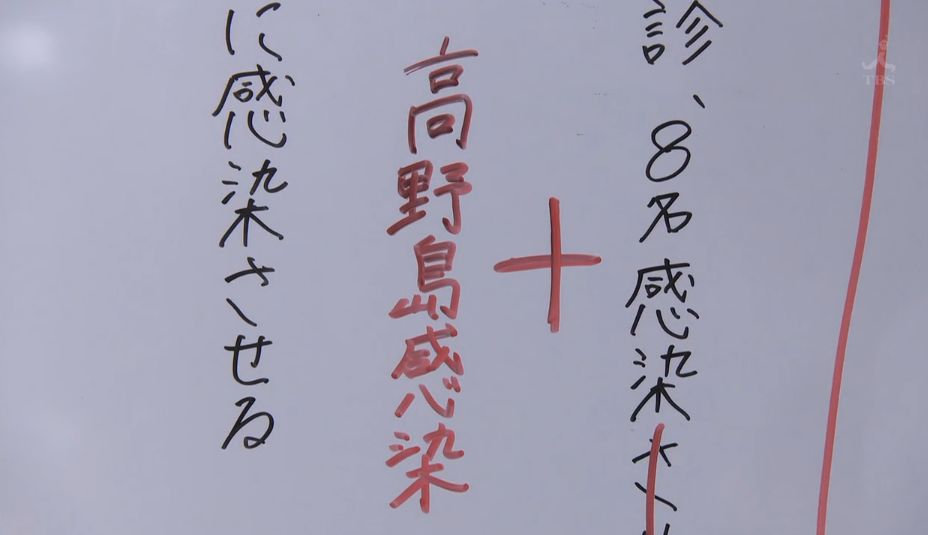 診、8名感染さ
+
高野島感染
に感染させる
TBS